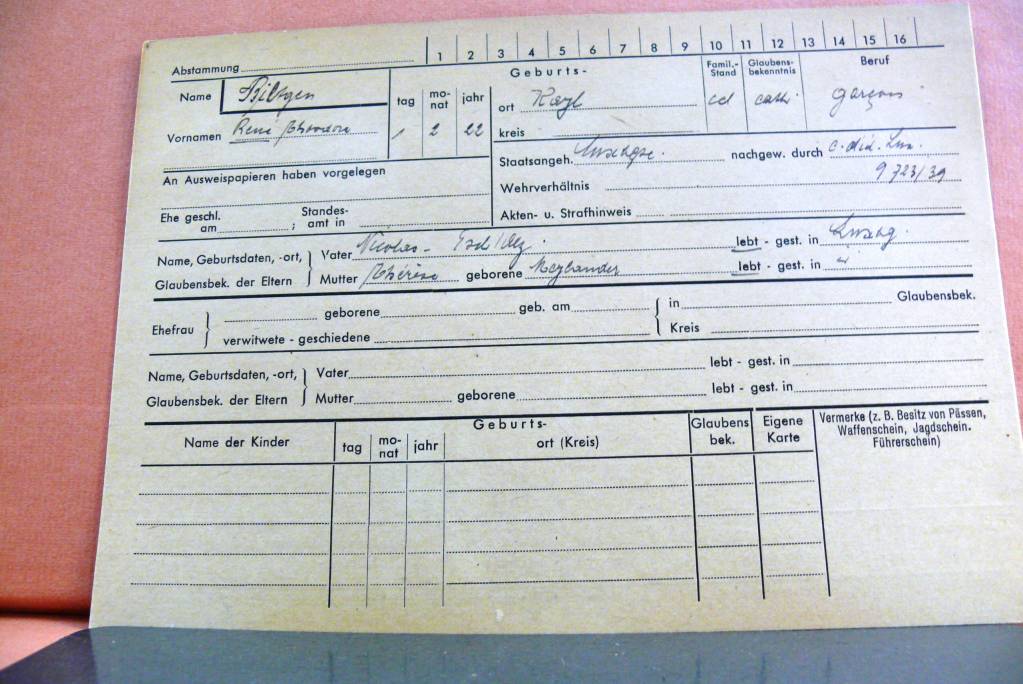 Abstammung 1 2 3 4 5 6 7 8 9 10 11 12 13 14 15 16
Name Biltgen
Vornamen René
Geburts-
tag mo-nat jahr
1 2 22
ort Kayl
kreis
Famil.-Stand
cel
Glaubens-bekenntnis
cath.
Beruf
garçon
Staatsangeh. nachgew. durch c. bid. Lux.
9723/39
An Ausweispapieren haben vorgelegen
Wehrverhältnis
Ehe geschl. am ; Standes-amt in
Akten- u. Strafhinweis
Name, Geburtsdaten, -ort,
Glaubensbek. der Eltern
Vater Nicolas - Esch/Alz. lebt - gest. in Luxbg.
Mutter Thérèse geborene Meylander lebt - gest. in "
Ehefrau
geborene geb. am in Glaubensbek.
verwitwete - geschiedene Kreis
Name, Geburtsdaten, -ort,
Glaubensbek. der Eltern
Vater lebt - gest. in
Mutter geborene lebt - gest. in
Name der Kinder
Geburts-
tag mo-nat jahr ort (Kreis)
Glaubens bek.
Eigene Karte
Vermerke (z. B. Besitz von Pässen,
Waffenschein, Jagdschein.
Führerschein)